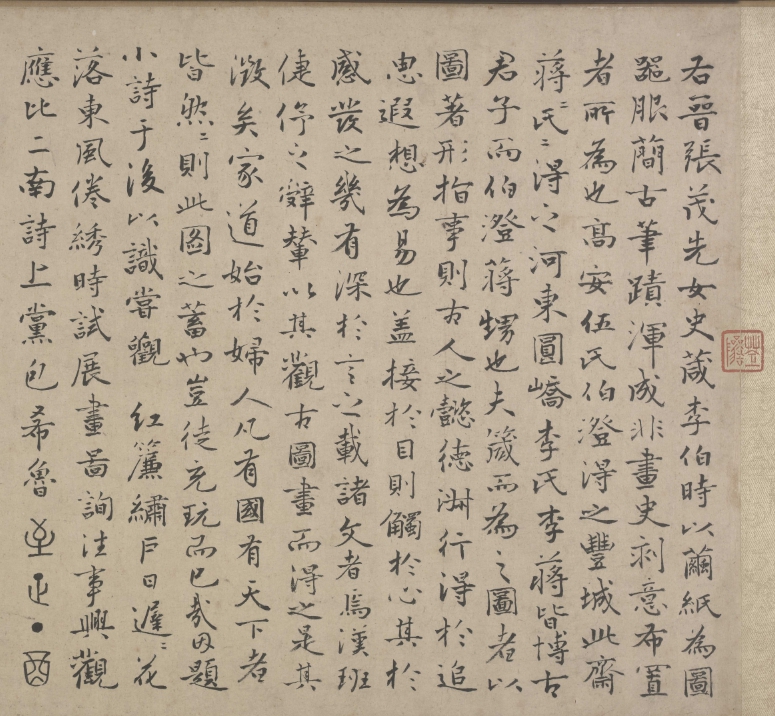 右晉張茂先女史箴李伯時以繭紙為圖
器服簡古筆蹟渾成非畫史刻意布置
者所為也高安伍氏伯澄得之豐城此齋
蔣〻氏〻得之河東圓嶠李氏李蔣皆博古
君子而伯澄蔣甥也夫箴而為之圖者以
圖著形指事則古人之懿德淋行得於追
思遐想為易也蓋接於目則觸於心其於
感發之幾有深於言之載諸文者焉漢班
倢伃之辭輦以其觀古圖畫而得之是其
激矣家道始於婦人凡有國有天下者
皆然〻則此圖之蓄也豈徒充玩而已哉因題
小詩于後以識嘗觀 紅簾繡戶日遲〻花
落東風倦綉時試展畫啚詢往事興觀
應比二南詩上黨包希魯 至正